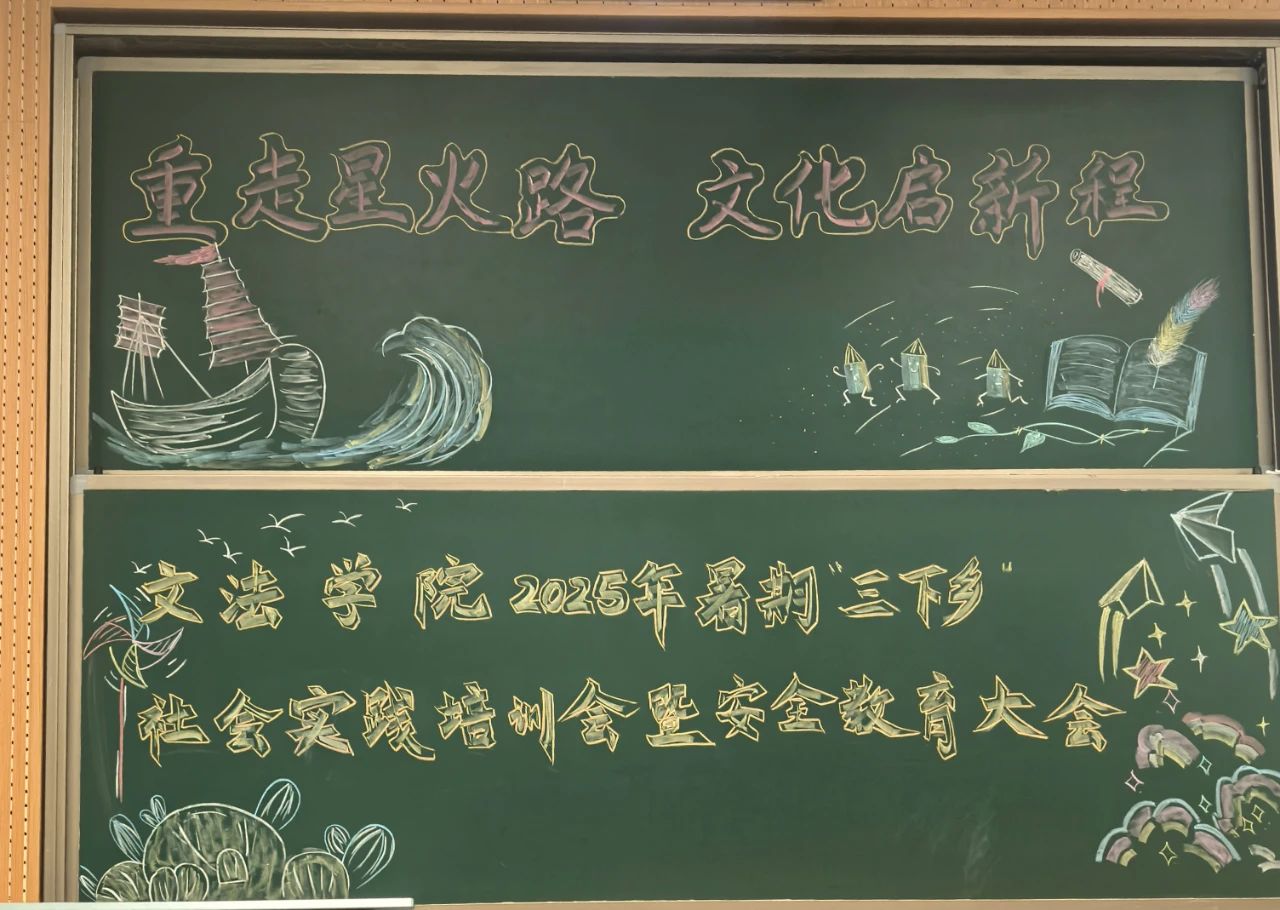 重走星火路 文化启新程
文法学院2025年暑期"三下乡"
社会实践培训会暨安全教育大会